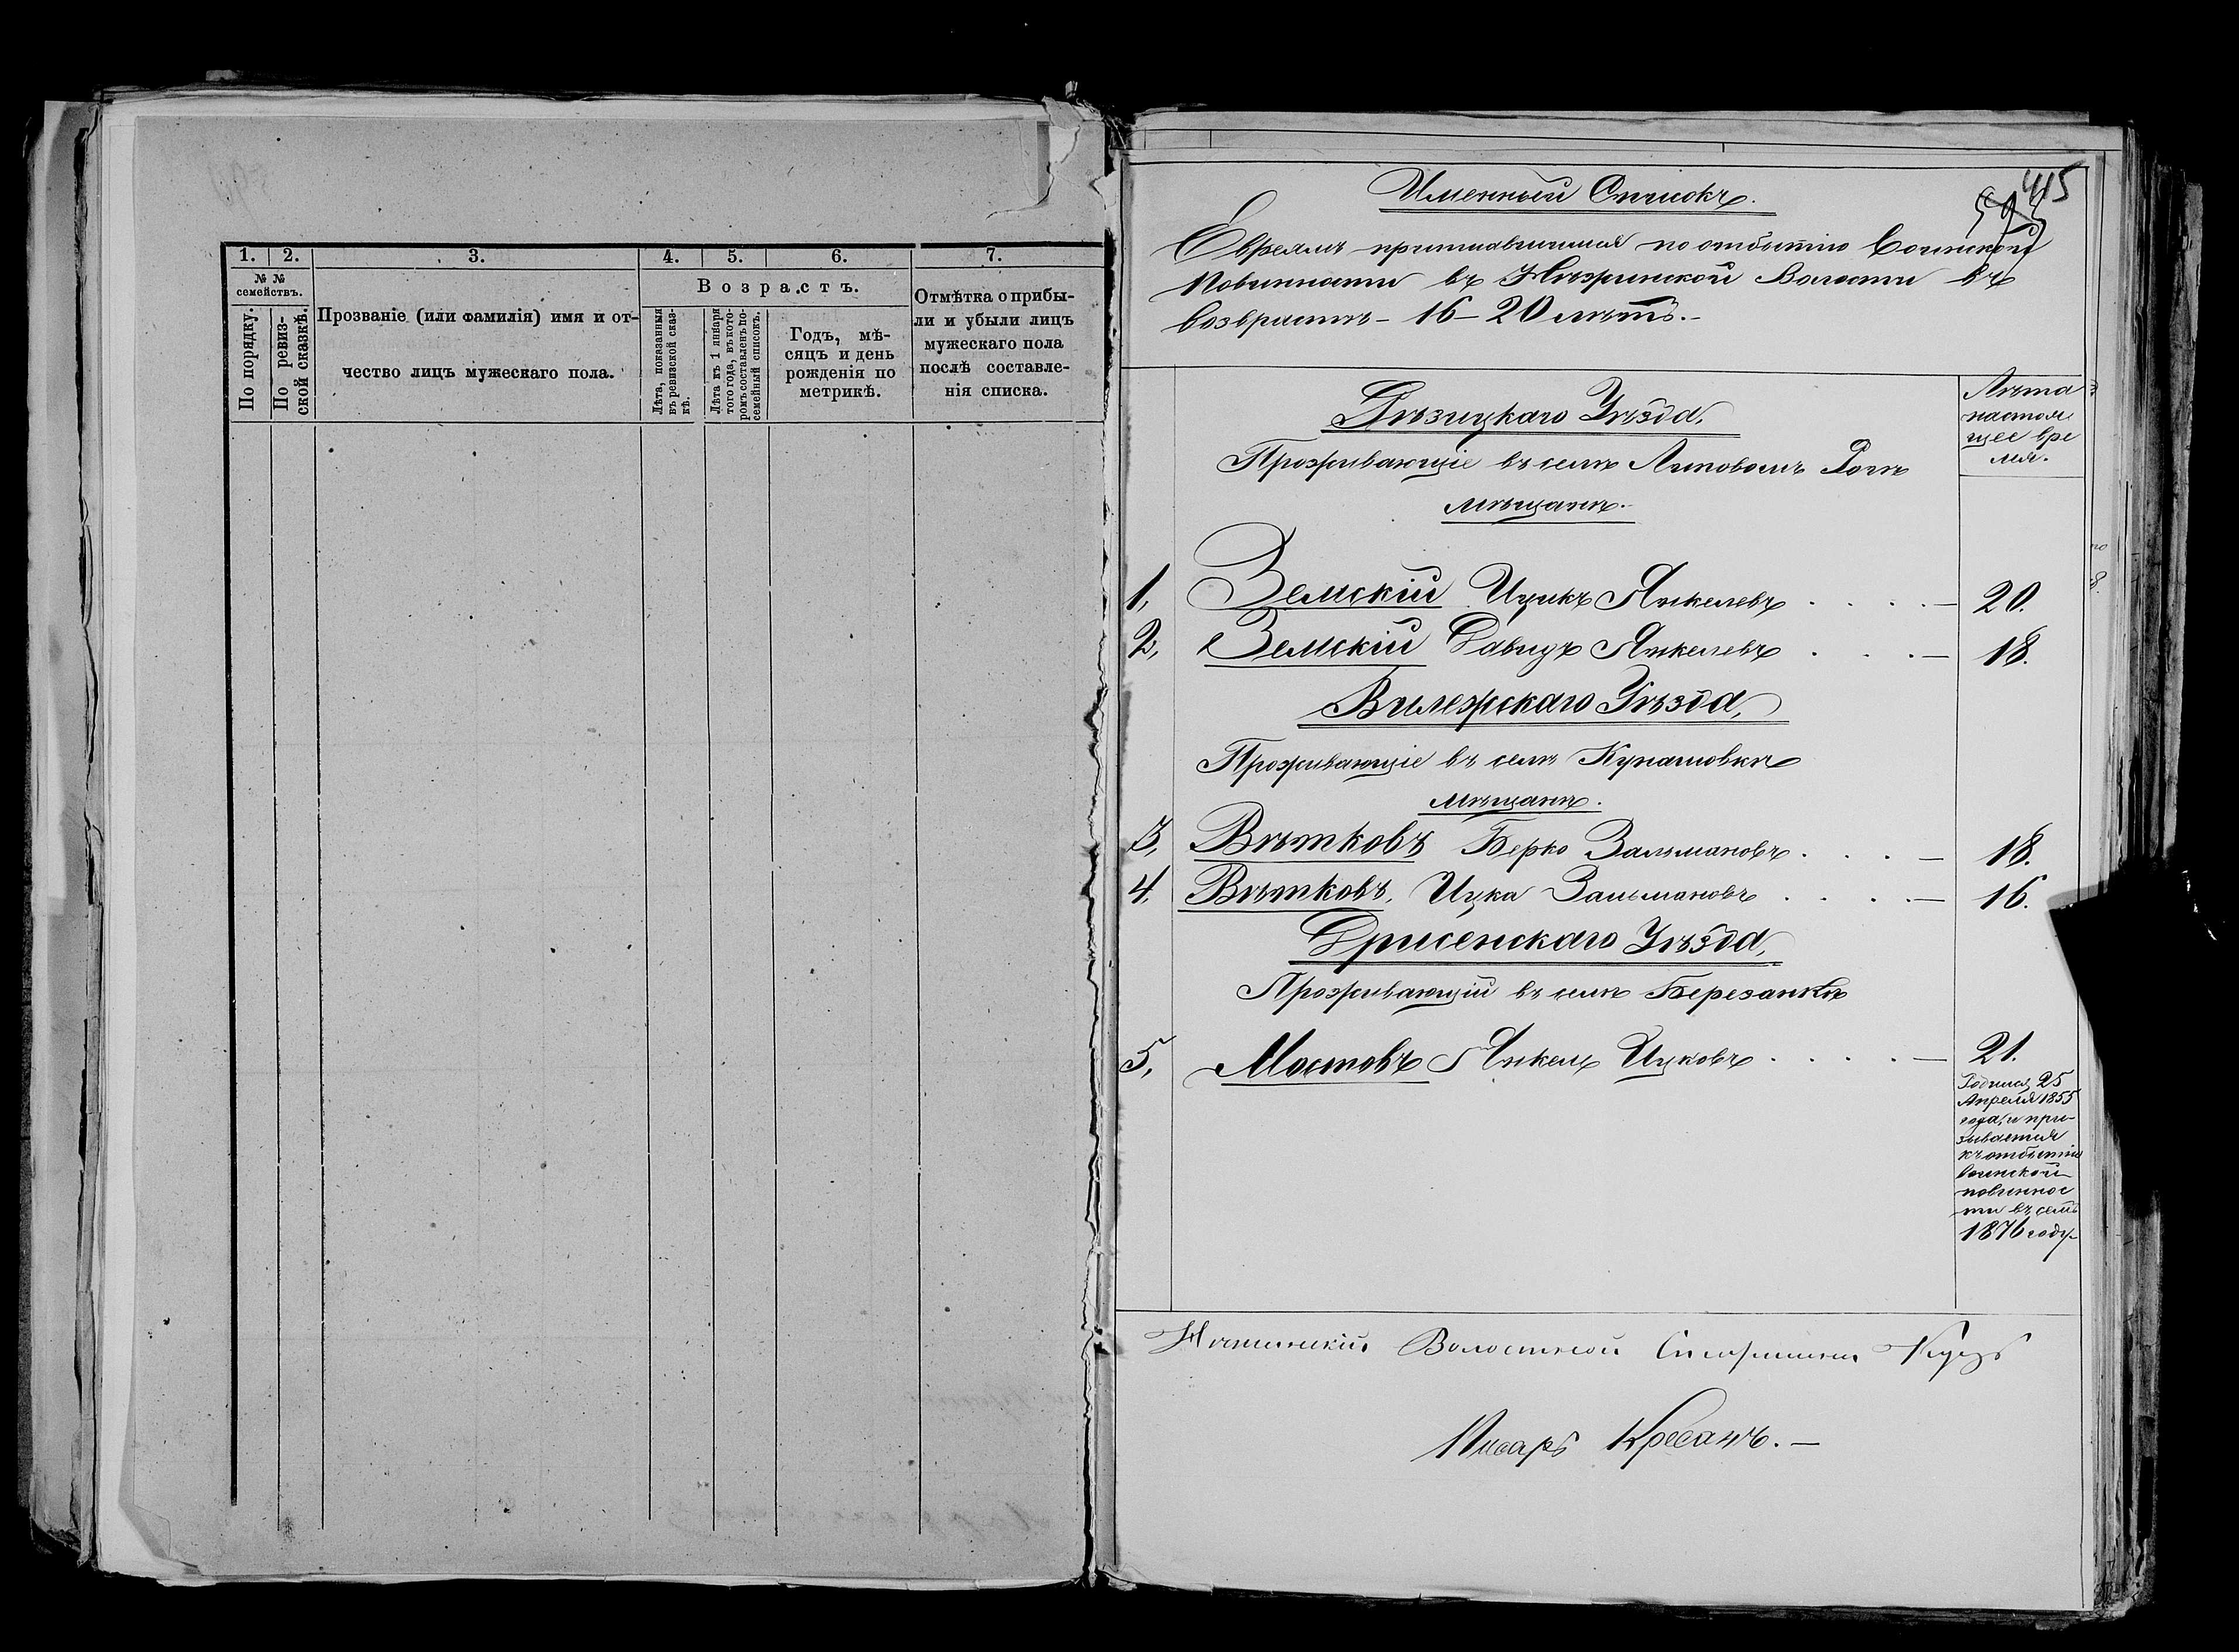 1. 2. 3. 4. 5. 6. 7.
№ №
семействъ.
По порядку.
По ревиз-
ской сказкѣ.
Прозваніе (или фамилія) имя и от-
чество лицъ мужескаго пола.
Возрастъ.
Лѣта, показанныя
въ ревизской сказ-
кѣ.
Лѣта къ 1 января
того года, въ кото-
ромъ составленъ по-
семейный списокъ.
Годъ, мѣ-
сяцъ и день
рожденія по
метрикѣ.
Отмѣтка о прибы-
ли и убыли лицъ
мужескаго пола
послѣ составле-
нія списка.
415
Именный Списокъ.
Евреямъ приписавшимся по отбытію Воинской
Повинности въ Нѣжинской Волости въ
возврастѣ – 16 – 20 лѣтъ. –
Лѣта
настоя
щее вре
мя.
Рѣзицкаго Уѣзда,
Проживающіе въ селѣ Липовомъ Рогѣ
мѣщане.
1, Земскій Ицикъ Янкелевъ . . . . – 20.
2, Земскій Давидъ Янкелевъ . . . – 18.
Вилежскаго Уѣзда,
Проживающіе въ селѣ Кунашовкѣ
мѣщане.
3, Вѣтковъ Берко Зальмановъ . . . – 18.
4, Вѣтковъ, Ицка Зальмановъ . . . . – 16.
Дрисенскаго Уѣзда,
Проживающій въ селѣ Березанкѣ
5, Мостовъ Янкель Ицковъ . . . . – 21.
Родился 25
Апреля 1855
года, и при-
зывается
къ отбытію
воинской
повиннос
ти въ семъ
1876 году.
Волостной Старшина
Писарь